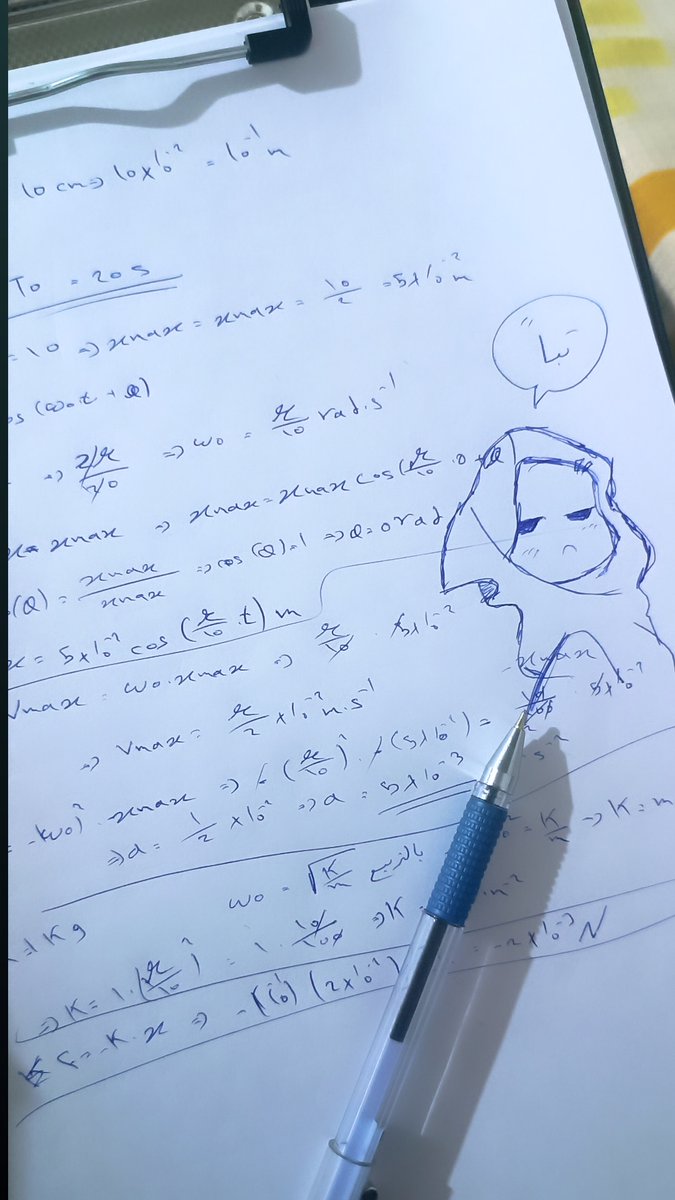 10 cm ⇒ 10×10⁻² = 10⁻¹ m
T0 = 20 s
= 10 ⇒ xmax = xmax = 10/2 = 5×10⁻² m
"تبا"
cos (ω0.t + Q)
⇒ 2π/20 ⇒ ω0 = π/10 rad.s⁻¹
x = xmax ⇒ xmax = xmax cos(π/10 . 0 + Q
(Q) = xmax/xmax ⇒ cos (Q) = 1 ⇒ Q = 0 rad
x = 5×10⁻² cos (π/10 t) m
Vmax = ω0.xmax ⇒ π/10 . 5×10⁻²
⇒ Vmax = π/2 ×10⁻² m.s⁻¹
xmax
= -(ω0)² . xmax ⇒ -(π/10)² . -(5×10⁻²) = 10/100 . 5×10⁻²
⇒ a = 1/2 ×10⁻² ⇒ a = 5×10⁻³ s⁻²
ω0 = √K/m بالتربيع = K/m ⇒ K = m
= 1 Kg
⇒ K = 1.(π/10)² = 1 . 10/100 ⇒ K m⁻²
F = -K.x ⇒ -(10⁻¹) (2×10⁻²) = -2×10⁻³ N